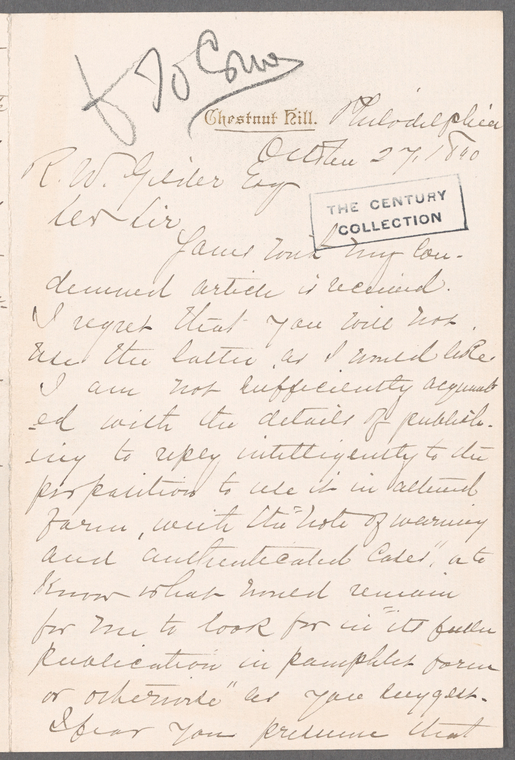 Chestnut Hill. Philadelphia
October 27, 1890
R. W. Gilder Esq
Dear Sir
THE CENTURY
COLLECTION
Yours with my con-
demned article is received.
I regret that you will not
use the latter, as I would like.
I am not sufficiently acquaint
ed with the details of publish-
ing to reply intelligently to the
proposition to use it in altered
form, with the "note of warning
and authenticated cases", or to
know what would remain
for me to look for in "its fuller
publication in pamphlet form
or otherwise" as you suggest.
I fear you presume that